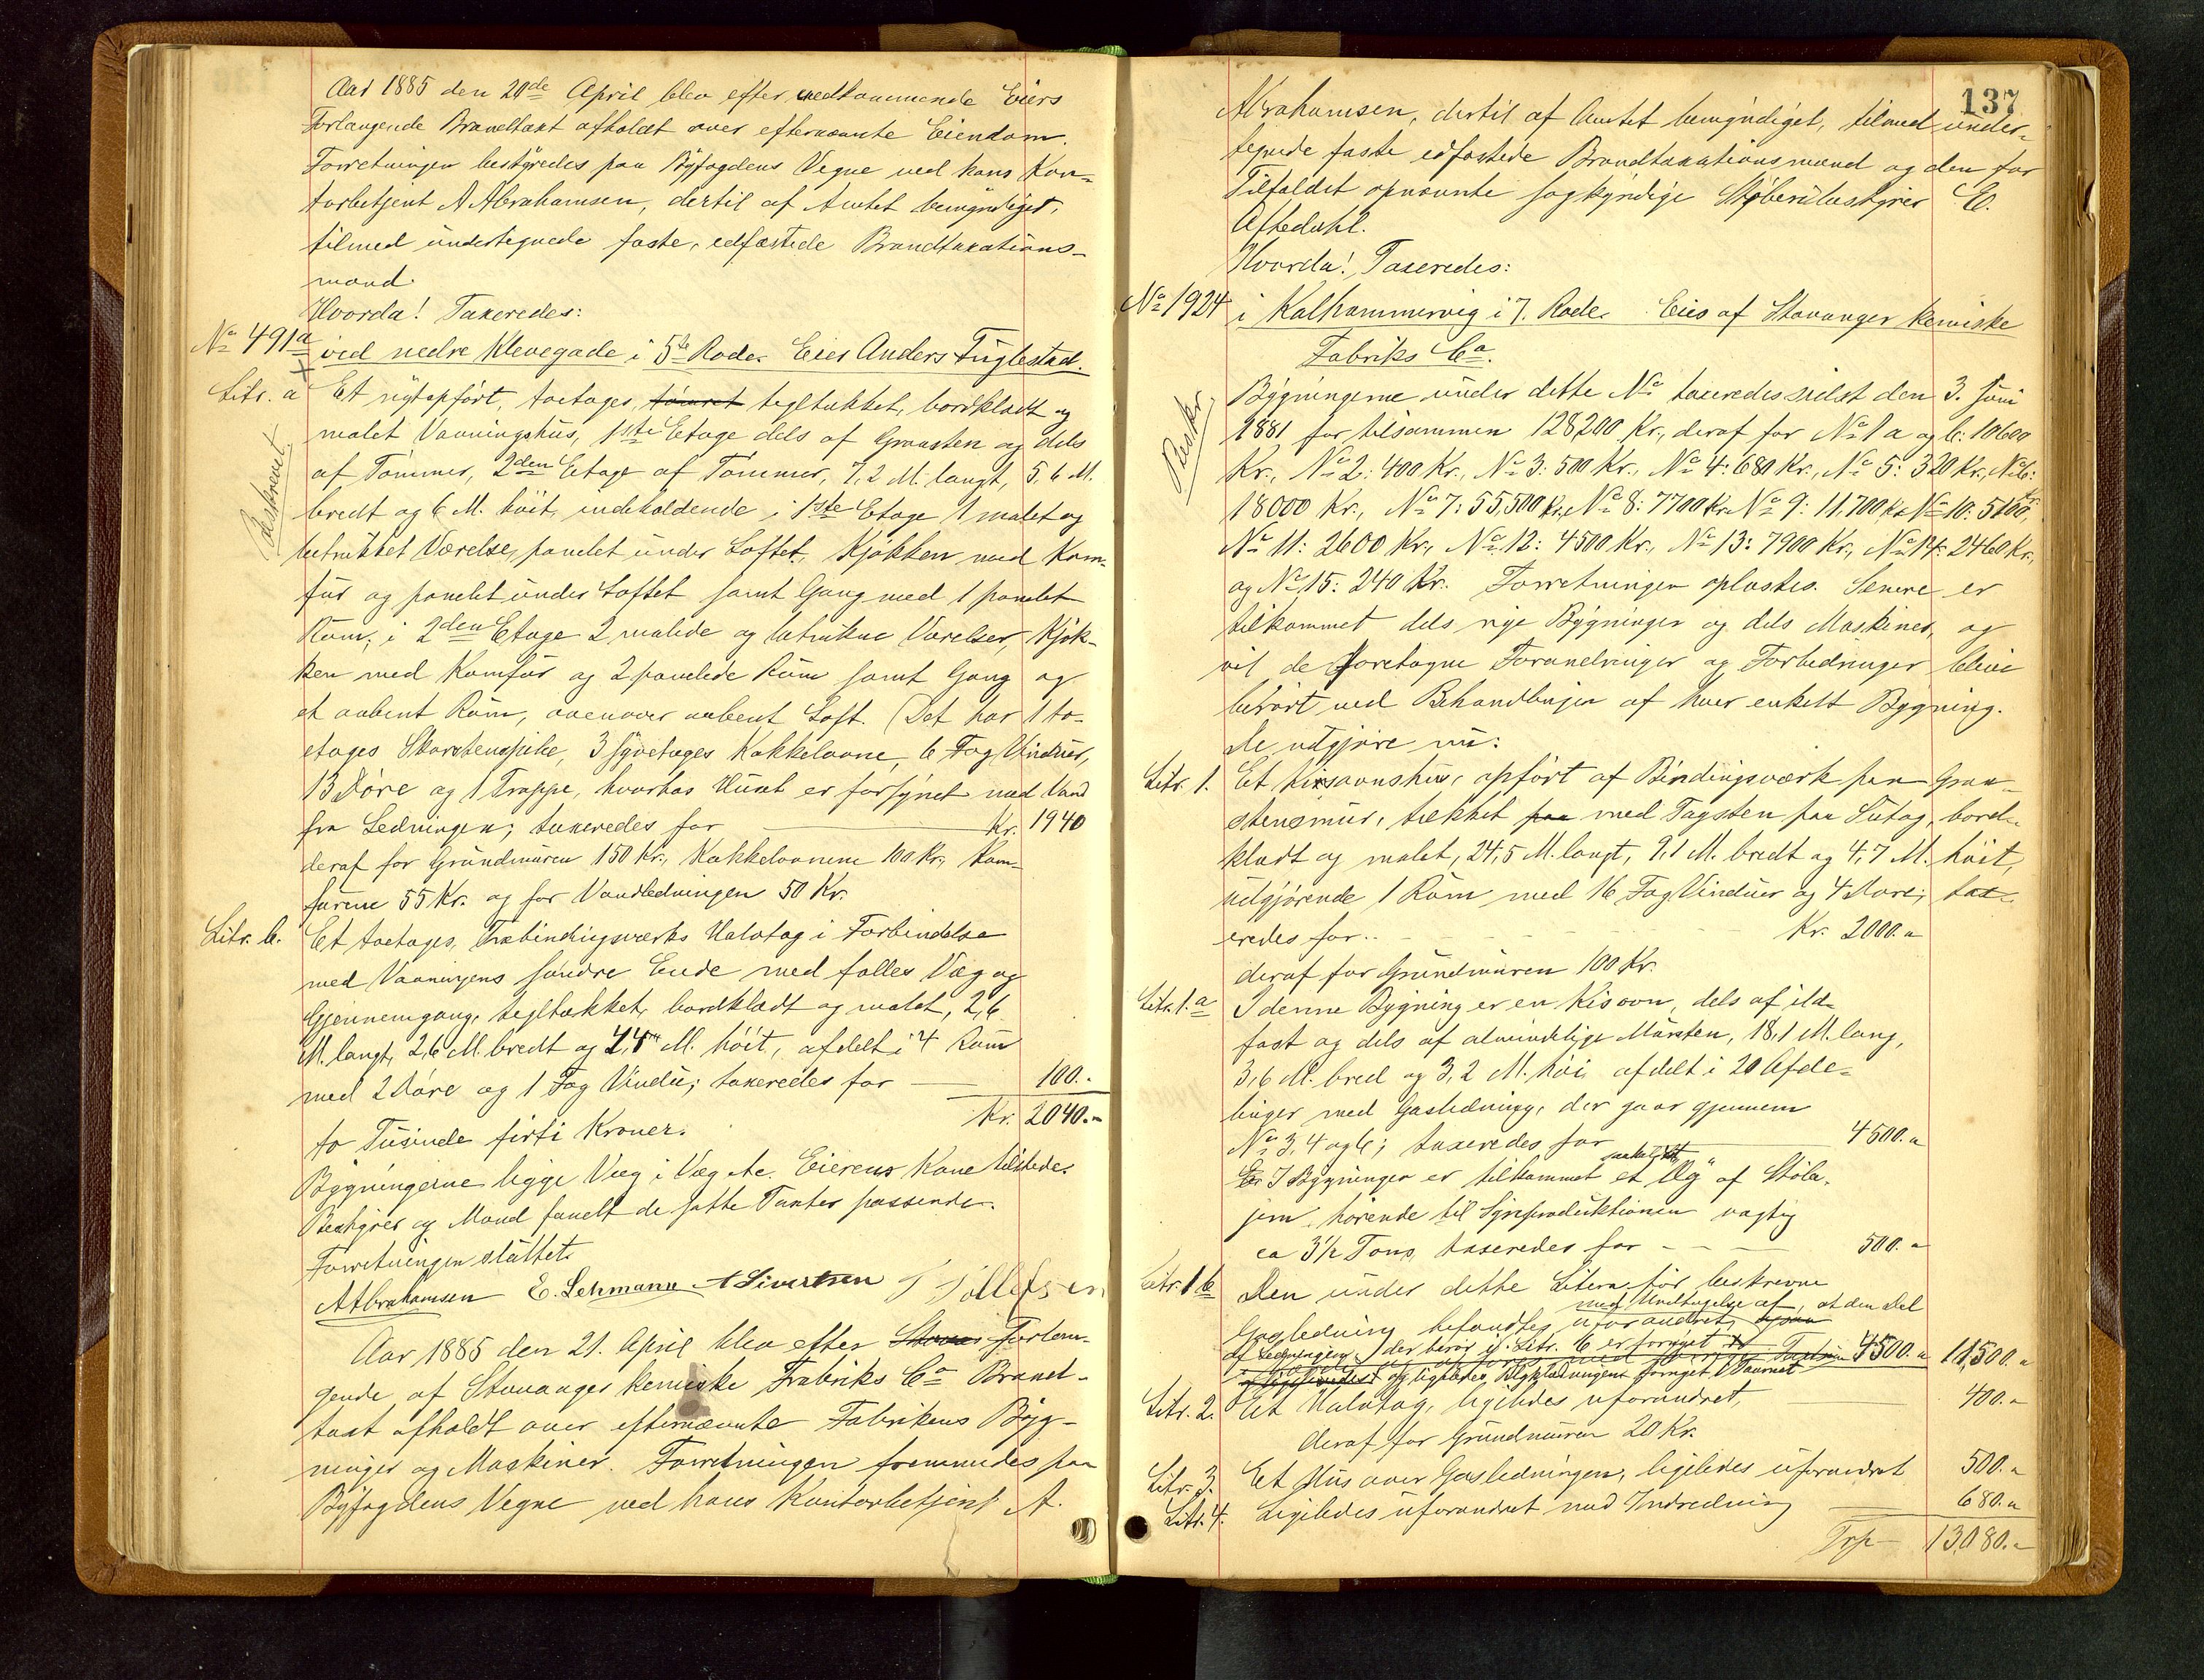 Aar 1885 den 20de April blev efter vedkommende Eiers
Forlangende Brandtaxt afholdt over efternævnte Eiendom.
Forretningen bestyredes paa Byfogdens Vegne ved hans Kon-
torbetjent A Abrahamsen, dertil af Amtet bemyndiget,
tilmed undertegnede faste, edfæstede Brandtaxations-
mænd.
Hvorda! Taxeredes:
No 491a ved nedre Klevegade i 5te Rode. Eier Anders Fuglestad.
Litr. a Et nyt opført, toetages, tømret tegltækket, bordklædt og
malet Vaaningshus, 1ste Etage dels af Graasten og dels
af Tømmer, 2den Etage af Tømmer, 7,2 M. langt, 5,6 M.
Beskrevet
bredt og 6 M. höit, indeholdende i 1ste Etage 1 malet og
betrukket Værelse, panelet under Loftet, Kjøkken med Kom-
fur og panelet under Loftet samt Gang med 1 panelet
Rum; i 2den Etage 2 malede og betrukne Værelser, Kjøk-
ken med Komfur og 2 panelede Rum samt Gang og
et aabent Rum, ovenover aabent Loft. (Det har 1 to-
etages Skorstenspibe, 3 syvetages Kakkelovne, 6 Fag Vinduer,
13 Døre og 1 Trappe, hvorhos Huset er forsynet med Vand
fra Ledningen; taxeredes for Kr. 1940
deraf for Grundmuren 150 Kr., Kakkelovnene 100 Kr., Kom-
furene 55 Kr. og for Vandledningen 50 Kr.
Litr. b. Et toetages, Træbindingsværks Halvtag i Forbindelse
med Vaaningens søndre Ende med fælles Væg og
Gjennemgang, tegltækket, bordklædt og malet, 2,6
M. langt, 2,6 M. bredt og M. höit, afdelt i 4 Rum
med 2 Døre og 1 Fag Vindu; taxeredes for 100.-
Kr. 2040.-
to Tusinde firti Kroner.
Bygningerne ligge Væg i Væg etc. Eierens Kone tilstede.
Bestyrer og Mænd fandt de satte Taxter passende.
Forretningen sluttet.
A Abrahamsen E. Lehmann A Sivertsen T Tollefsen
Aar 1885 den 21. April blev efter Forlan-
gende af Stavanger kemiske Fabriks Co Brand-
taxt afholdt over efternævnte Fabrikens Byg-
ninger og Maskiner. Forretningen fremmedes paa
Byfogdens Vegne ved hans Kontorbetjent A.
137
Abrahamsen, dertil af Amtet bemyndiget, tilmed under-
tegnede faste edfæstede Brandtaxationsmænd og den for
Tilfældet opnævnte sagkyndige Støberibestyrer E.
Aftedahl.
Hvorda! Taxeredes:
No 1924 i Kalhammervig i 7. Rode. Eies af Stavanger kemiske
Fabriks Co.
Beskr.
Bygningerne under dette No taxeredes sidst den 3. Juni
1881 for tilsammen 128200 Kr., deraf for No 1 a og b: 10600
Kr., No 2: 400 Kr., No 3: 500 Kr., No 4: 680 Kr., No 5: 320 Kr., No 6:
18000 Kr., No 7: 55,500 Kr., No 8: 7700 Kr. No 9: 11,700 Kr. No 10: 5100 Kr,
No 11: 2600 Kr., No 12: 4500 Kr., No 13: 7900 Kr., No 14: 2460 Kr.,
og No 15: 240 Kr. Forretningen oplæstes. Senere er
tilkommet dels nye Bygninger og dels Maskiner, og
vil de foretagne Forandringer og Forbedringer blive
berört ved Behandlingen af hver enkelt Bygning.
De udgjøre nu:
Litr. 1. Et kisovnshus, opført af Bindingsværk paa Graa-
stensmur, tækket paa med Tagsten paa Sutag, bord-
klædt og malet, 24,5 M. langt, 9,1 M. bredt og 4,7 M. höit,
udgjørende 1 Rum med 16 Fag Vinduer og 4 Døre; tax-
eredes for Kr. 2000.-
deraf for Grundmuren 100 Kr.
Litr. 1. a I denne Bygning er en Kisovn, dels af ild-
fast og dels af almindelige Mursten, 18,1 M. lang,
3,6 M. bred og 3,2 M. høi, afdelt i 20 Afde-
linger med Gasledning, der gaar gjennem
No 3, 4 og 6; taxeredes for 4500.-
I Bygningen er tilkommet et af Støbe-
jern, hørende til Syreproduktionen vægtig
ca 3½ Tons, taxeredes for 500.-
Litr. 1 b Den under dette Litera før beskrevne
Gasledning befandtes uforandret, med Undtagelse af, at den Del
af Ledningen, der berør Litr. 6 er fornyet 4500.- 11,500.-
og ligeledes Blyklædningen fornyet
Litr. 2. Et Halvtag, ligeledes uforandret, 400.-
deraf for Grundmuren 20 Kr.
Litr. 3. Et Hus over Gasledningen, ligeledes uforandret 500.-
Litr. 4. Ligeledes uforandret med Indredning 680.-
Trp 13,080.-